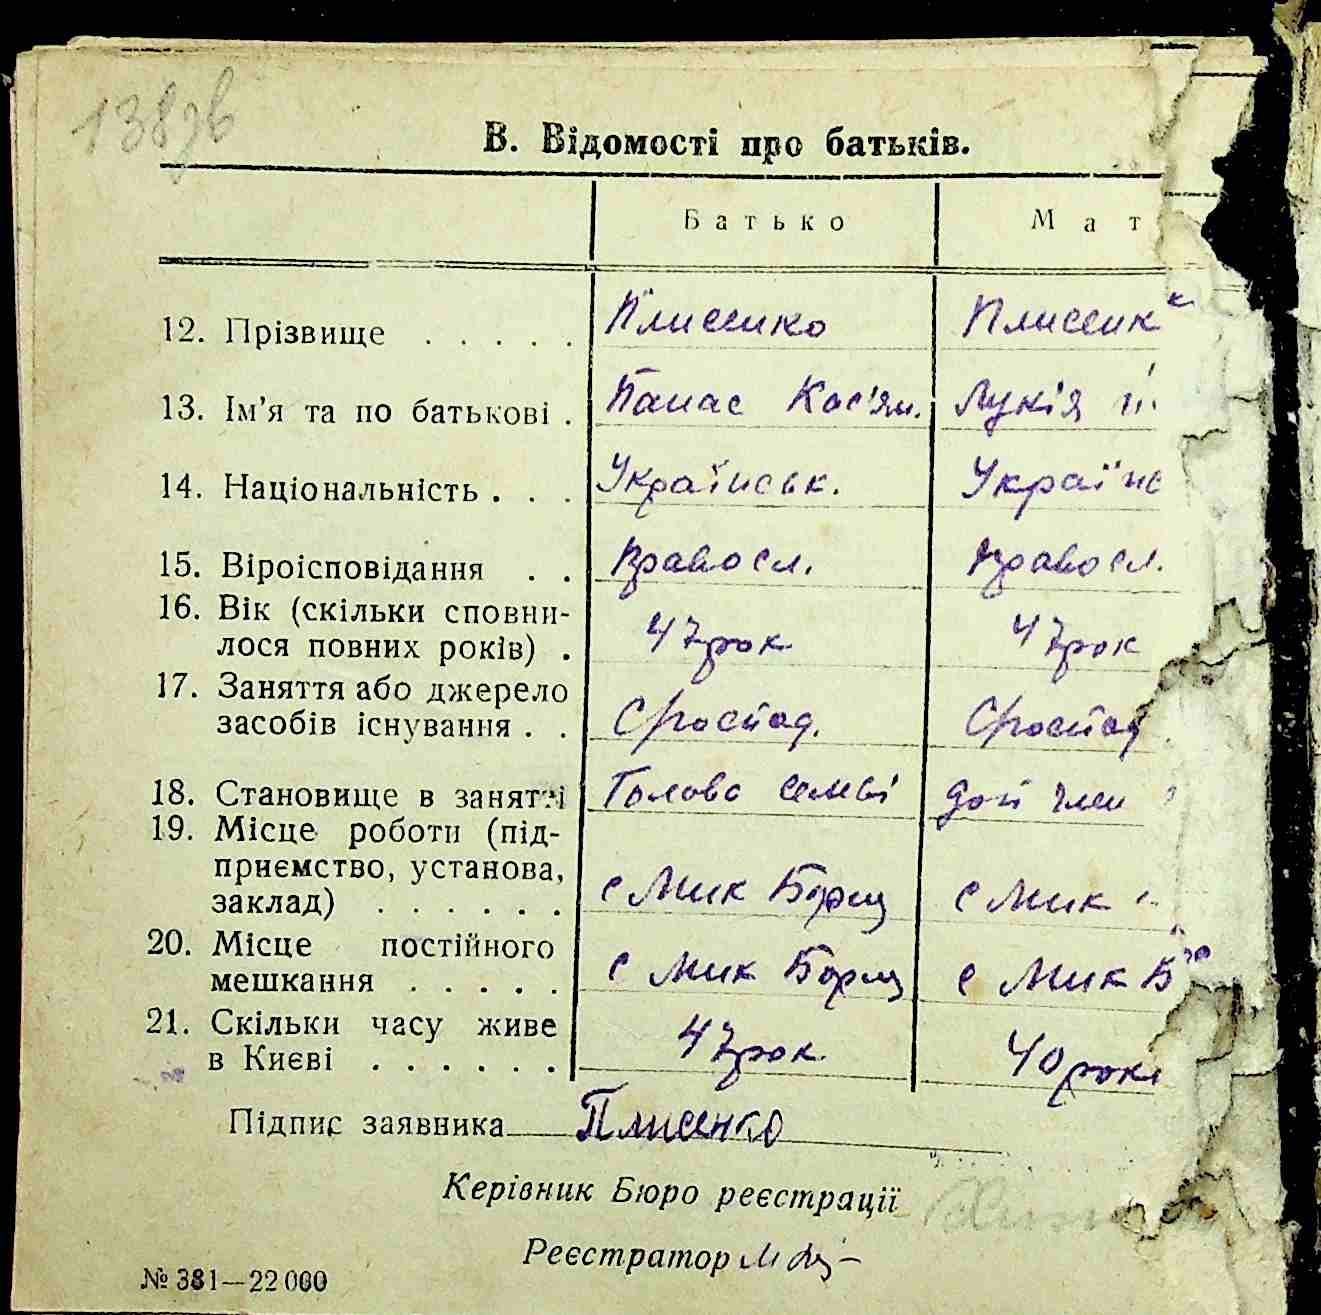 138зв
В. Відомості про батьків.
Батько Мат
12. Прізвище . . . . . Плисенко Плисенк
13. Ім'я та по батькові . Панас Кос'ян. Лукія
14. Національність . . . Українськ. Украïнс
15. Віроісповідання . . Правосл. Правосл.
16. Вік (скільки сповни-
лося повних років) . 47 рок 47 рок
17. Заняття або джерело
засобів існування . . С/господ. С/господ
18. Становище в занятті Голова семьі доп член
19. Місце роботи (під-
приємство, установа,
заклад) . . . . . . с Мик Борщ с Мик
20. Місце постійного
мешкання . . . . . с Мик Борщ с Мик Бо
21. Скільки часу живе
в Києві . . . . . . 47 рок. 40 рок
Підпис заявника Плисенко
Керівник Бюро реєстрації
Реєстратор
№ 381—22 000